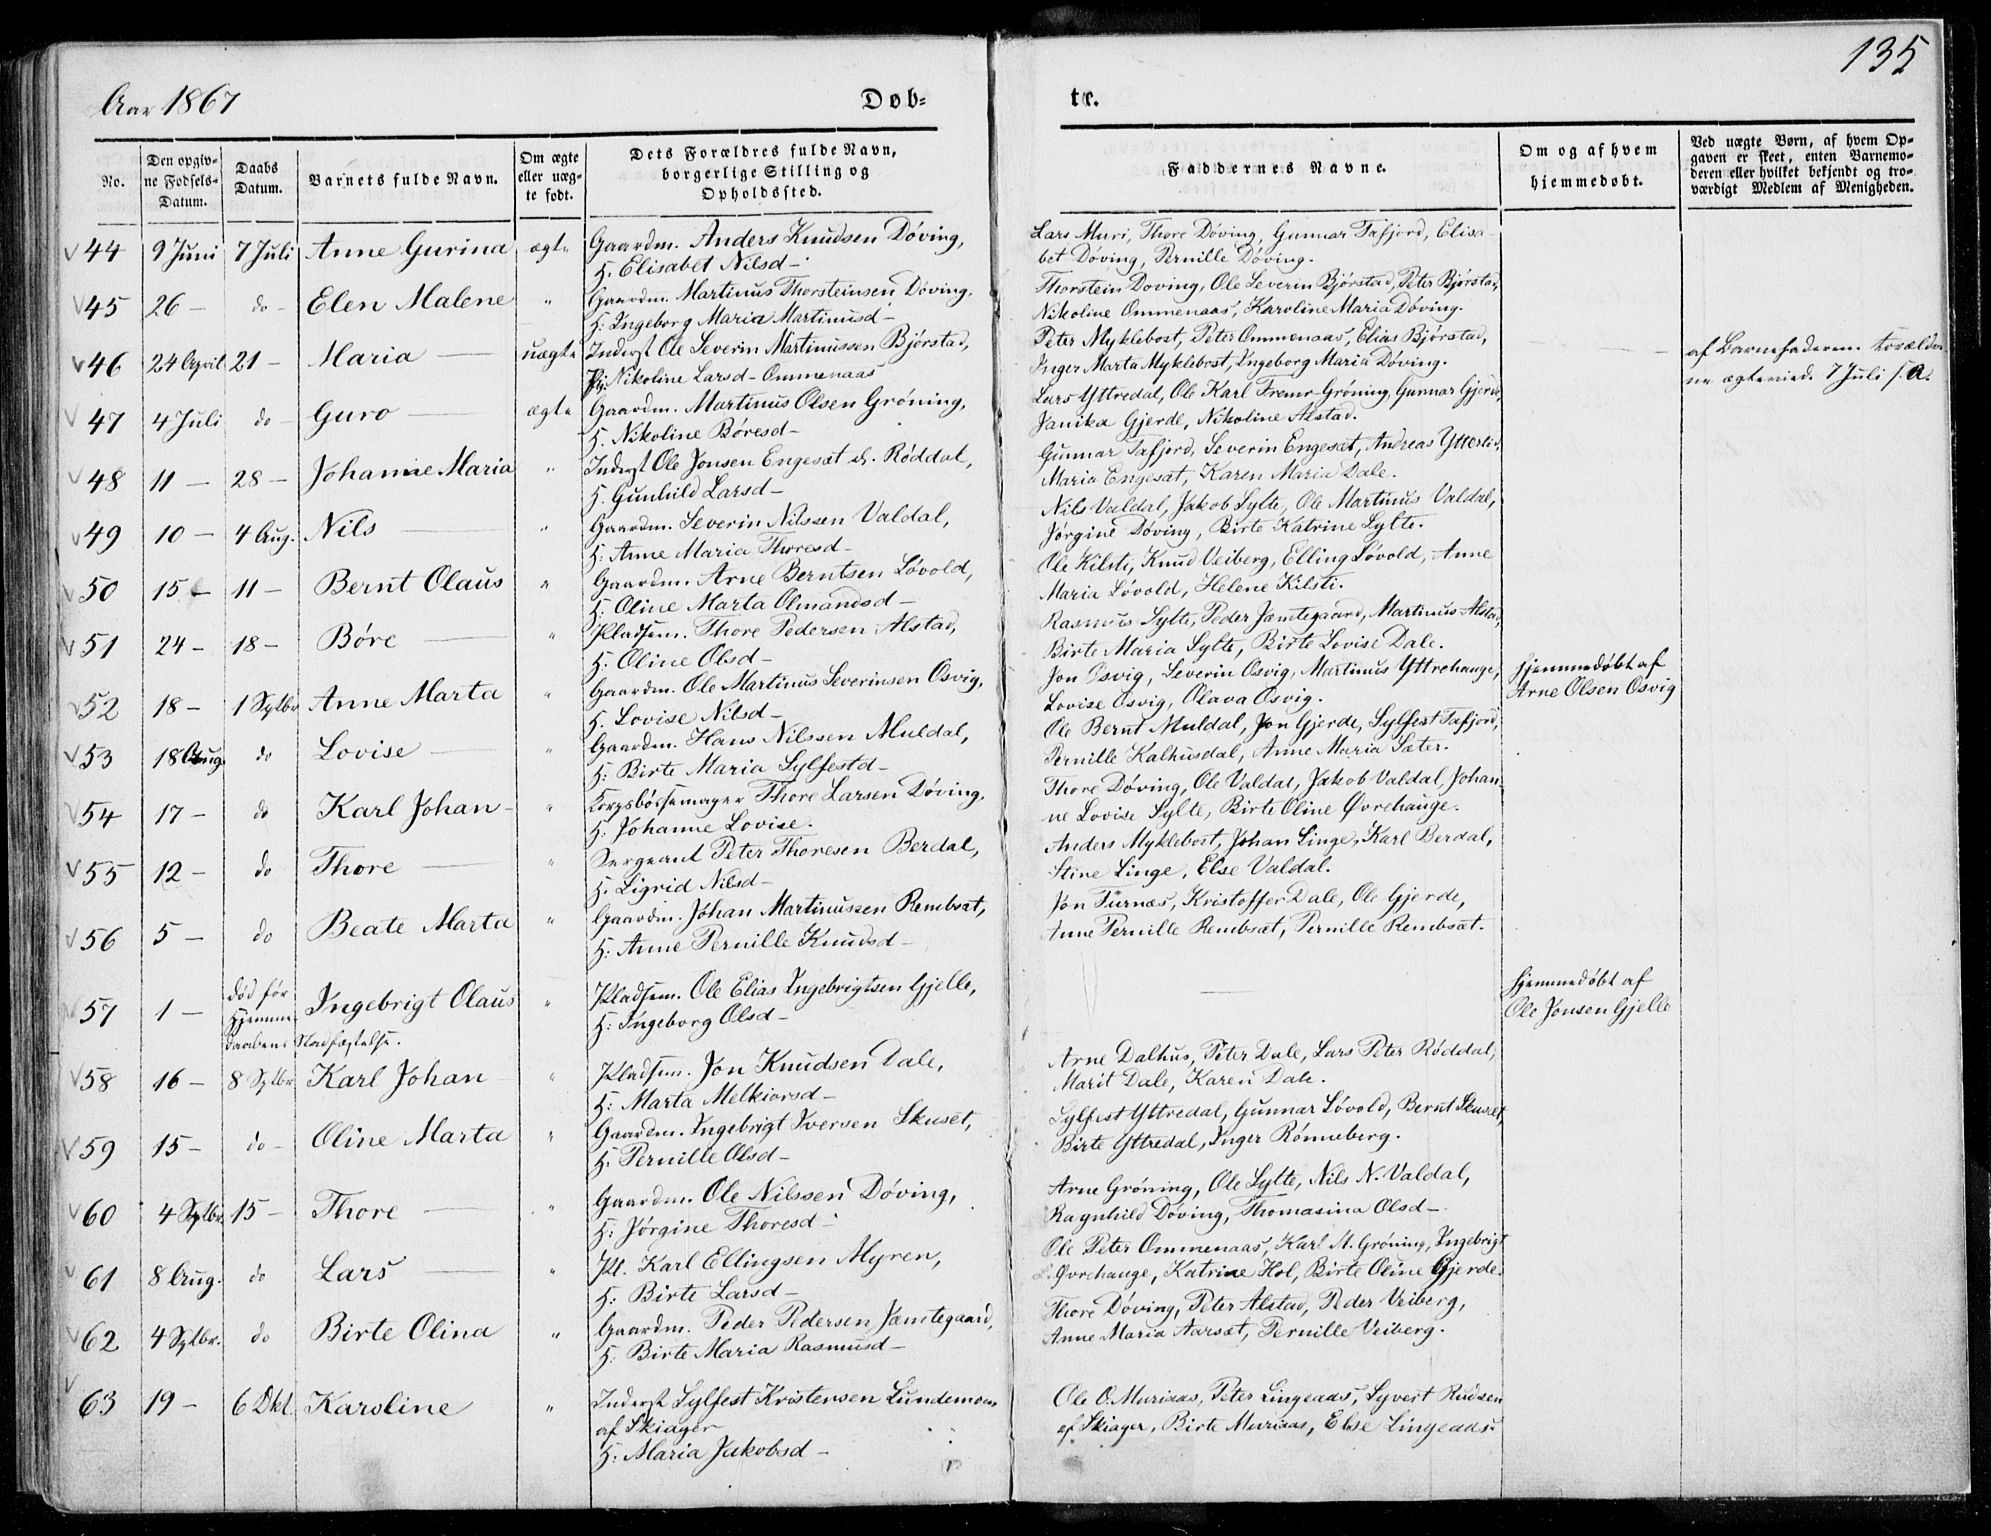 135
Aar 1867
Døb-
te.
No.
Den opgiv-
ne Fødsels-
Datum.
Daabs
Datum.
Barnets fulde Navn.
Om ægte
eller uæg-
te født.
Dets Forældres fulde Navn,
borgerlige Stilling og
Opholdssted.
Faddernes Navne.
Om og af hvem
hjemmedøbt.
Ved uægte Børn, af hvem Op-
gaven er skeet, enten Barnemo-
deren eller hvilket bekjendt og tro-
værdigt Medlem af Menigheden.
44 9 Juni 7 Juli Anne Gurina ægte Gaardm. Anders Knudsen Døving,
H. Elisabet Nilsd-
Lars Muri, Thore Døving, Gunnar Tafjord, Elisa-
bet Døving, Pernille Døving.
45 26 - do - Elen Malene " Gaardm. Martinus Thorsteinsen Døving,
H: Ingeborg Maria Martinusd-
Thorstein Døving, Ole Severin Bjørstad, Peter Bjørstad,
Nikoline Ommenaas, Karoline Maria Døving.
46 24 April 21 - Maria uægte Inderst Ole Severin Martinussen Bjørstad,
Pij. Nikoline Larsd- Ommenaas
Peter Myklebost, Peter Ommenaas, Elias Bjørstad,
Inger Marta Myklebost, Ingeborg Maria Døving.
af Barnefaderen. Forældre-
ne ægteviede 7 Juli s. A.
47 4 Juli do - Guro ægte Gaardm. Martinus Olsen Grøning,
H. Nikoline Børesd-
Lars Yttredal, Ole Karl Fremr-Grøning, Gunnar Gjerde,
Janika Gjerde, Nikoline Alstad.
48 11 - 28 - Johanne Maria " Inderst Ole Jonsen Engesæt e. Røddal,
H. Gunhild Larsd-
Gunnar Tafjord, Severin Engesæt, Andreas Ytterli,
Maria Engesæt, Karen Maria Dale.
49 10 - 4 Aug. Nils " Gaardm. Severin Nilssen Valdal,
H: Anne Maria Thoresd-
Nils Valdal, Jakob Sylte, Ole Martinus Valdal,
Jørgine Døving, Birte Katrine Sylte.
50 15 - 11 - Bernt Olaus " Gaardm. Arne Berntsen Løvold,
H. Oline Marta Olmandsd-
Ole Kilsti, Knud Veiberg, Elling Løvold, Anne
Maria Løvold, Helene Kilsti.
51 24 - 18 - Børe " Pladsem. Thore Pedersen Alstad,
H. Oline Olsd-
Rasmus Sylte, Peder Jæmtegaard, Martinus Alstad,
Birte Maria Sylte, Birte Lovise Dale.
52 18 - 1 Sptbr Anne Marta " Gaardm. Ole Martinus Severinsen Osvig,
H. Lovise Nilsd-
Jon Osvig, Severin Osvig, Martinus Yttrehauge,
Lovise Osvig, Olava Osvig.
hjemmedøbt af
Arne Olsen Osvig
53 18 Aug. do Lovise " Gaardm. Hans Nilssen Muldal,
H: Birte Maria Sylfestd-
Ole Bernt Muldal, Jon Gjerde, Sylfest Tafjord,
Pernille Kalhusdal, Anne Maria Sæter.
54 17 - do Karl Johan - " Korpsbøssemager Thore Larsen Døving,
H: Johanne Lovise.
Thore Døving, Ole Valdal, Jakob Valdal, Johan-
ne Lovise Sylte, Birte Oline Øvrehauge.
55 12 - do Thore " Sergeant Peter Thoresen Berdal,
H. Sigrid Nilsd-
Anders Myklebost, Johan Linge, Karl Berdal,
Stine Linge, Else Valdal.
56 5 - do Beate Marta " Gaardm. Johan Martinussen Rembsæt,
H: Anne Pernille Knudsd-
Jon Furnæs, Kristoffer Dale, Ole Gjerde,
Anne Pernille Rembsæt, Pernille Rembsæt.
57 1 - død før
Hjemme-
daabens Stadfæstelse. Ingebrigt Olaus " Pladsem. Ole Elias Ingebrigtsen Gjelle,
H: Ingeborg Olsd-
hjemmedøbt af
Ole Jonsen Gjelle
58 16 - 8 Sptbr Karl Johan " Pladsem. Jon Knudsen Dale,
H: Marta Melkiorsd-
Arne Dalhus, Peter Dale, Lars Peter Røddal,
Marit Dale, Karen Dale.
59 15 - do - Oline Marta " Gaardm. Ingebrigt Iversen Skuset,
H. Pernille Olsd-
Sylfest Yttredal, Gunnar Løvold, Bernt Skuset,
Birte Yttredal, Inger Rønneberg.
60 4 Sptbr. 15 - Thore " Gaardm. Ole Nilssen Døving,
H: Jørgine Thoresd-
Arne Grøning, Ole Sylte, Nils N. Valdal,
Ragnhild Døving, Thomasina Olsd-
61 8 Aug. do Lars " Pl. Karl Ellingsen Myren,
H: Birte Larsd-
Ole Peter Ommenaas, Karl M. Grøning, Ingebrigt
L. Øvrehauge, Katrine Hol, Birte Oline Gjerde.
62 4 Sptbr. do Birte Olina " Gaardm. Peder Pedersen Jæmtegaard,
H: Birte Maria Rasmusd-
Thore Døving, Peter Alstad, Peder Veiberg,
Anne Maria Aarsæt, Pernille Veiberg.
63 19 - 6 Okt. Karoline " Inderst Sylfest Kristensen Lundemoen
af Skiager
H: Maria Jakobsd-
Ole O. Muriaas, Peter Lingeaas, Syvert Rudsen
af Skiager, Birte Muriaas, Else Lingeaas.